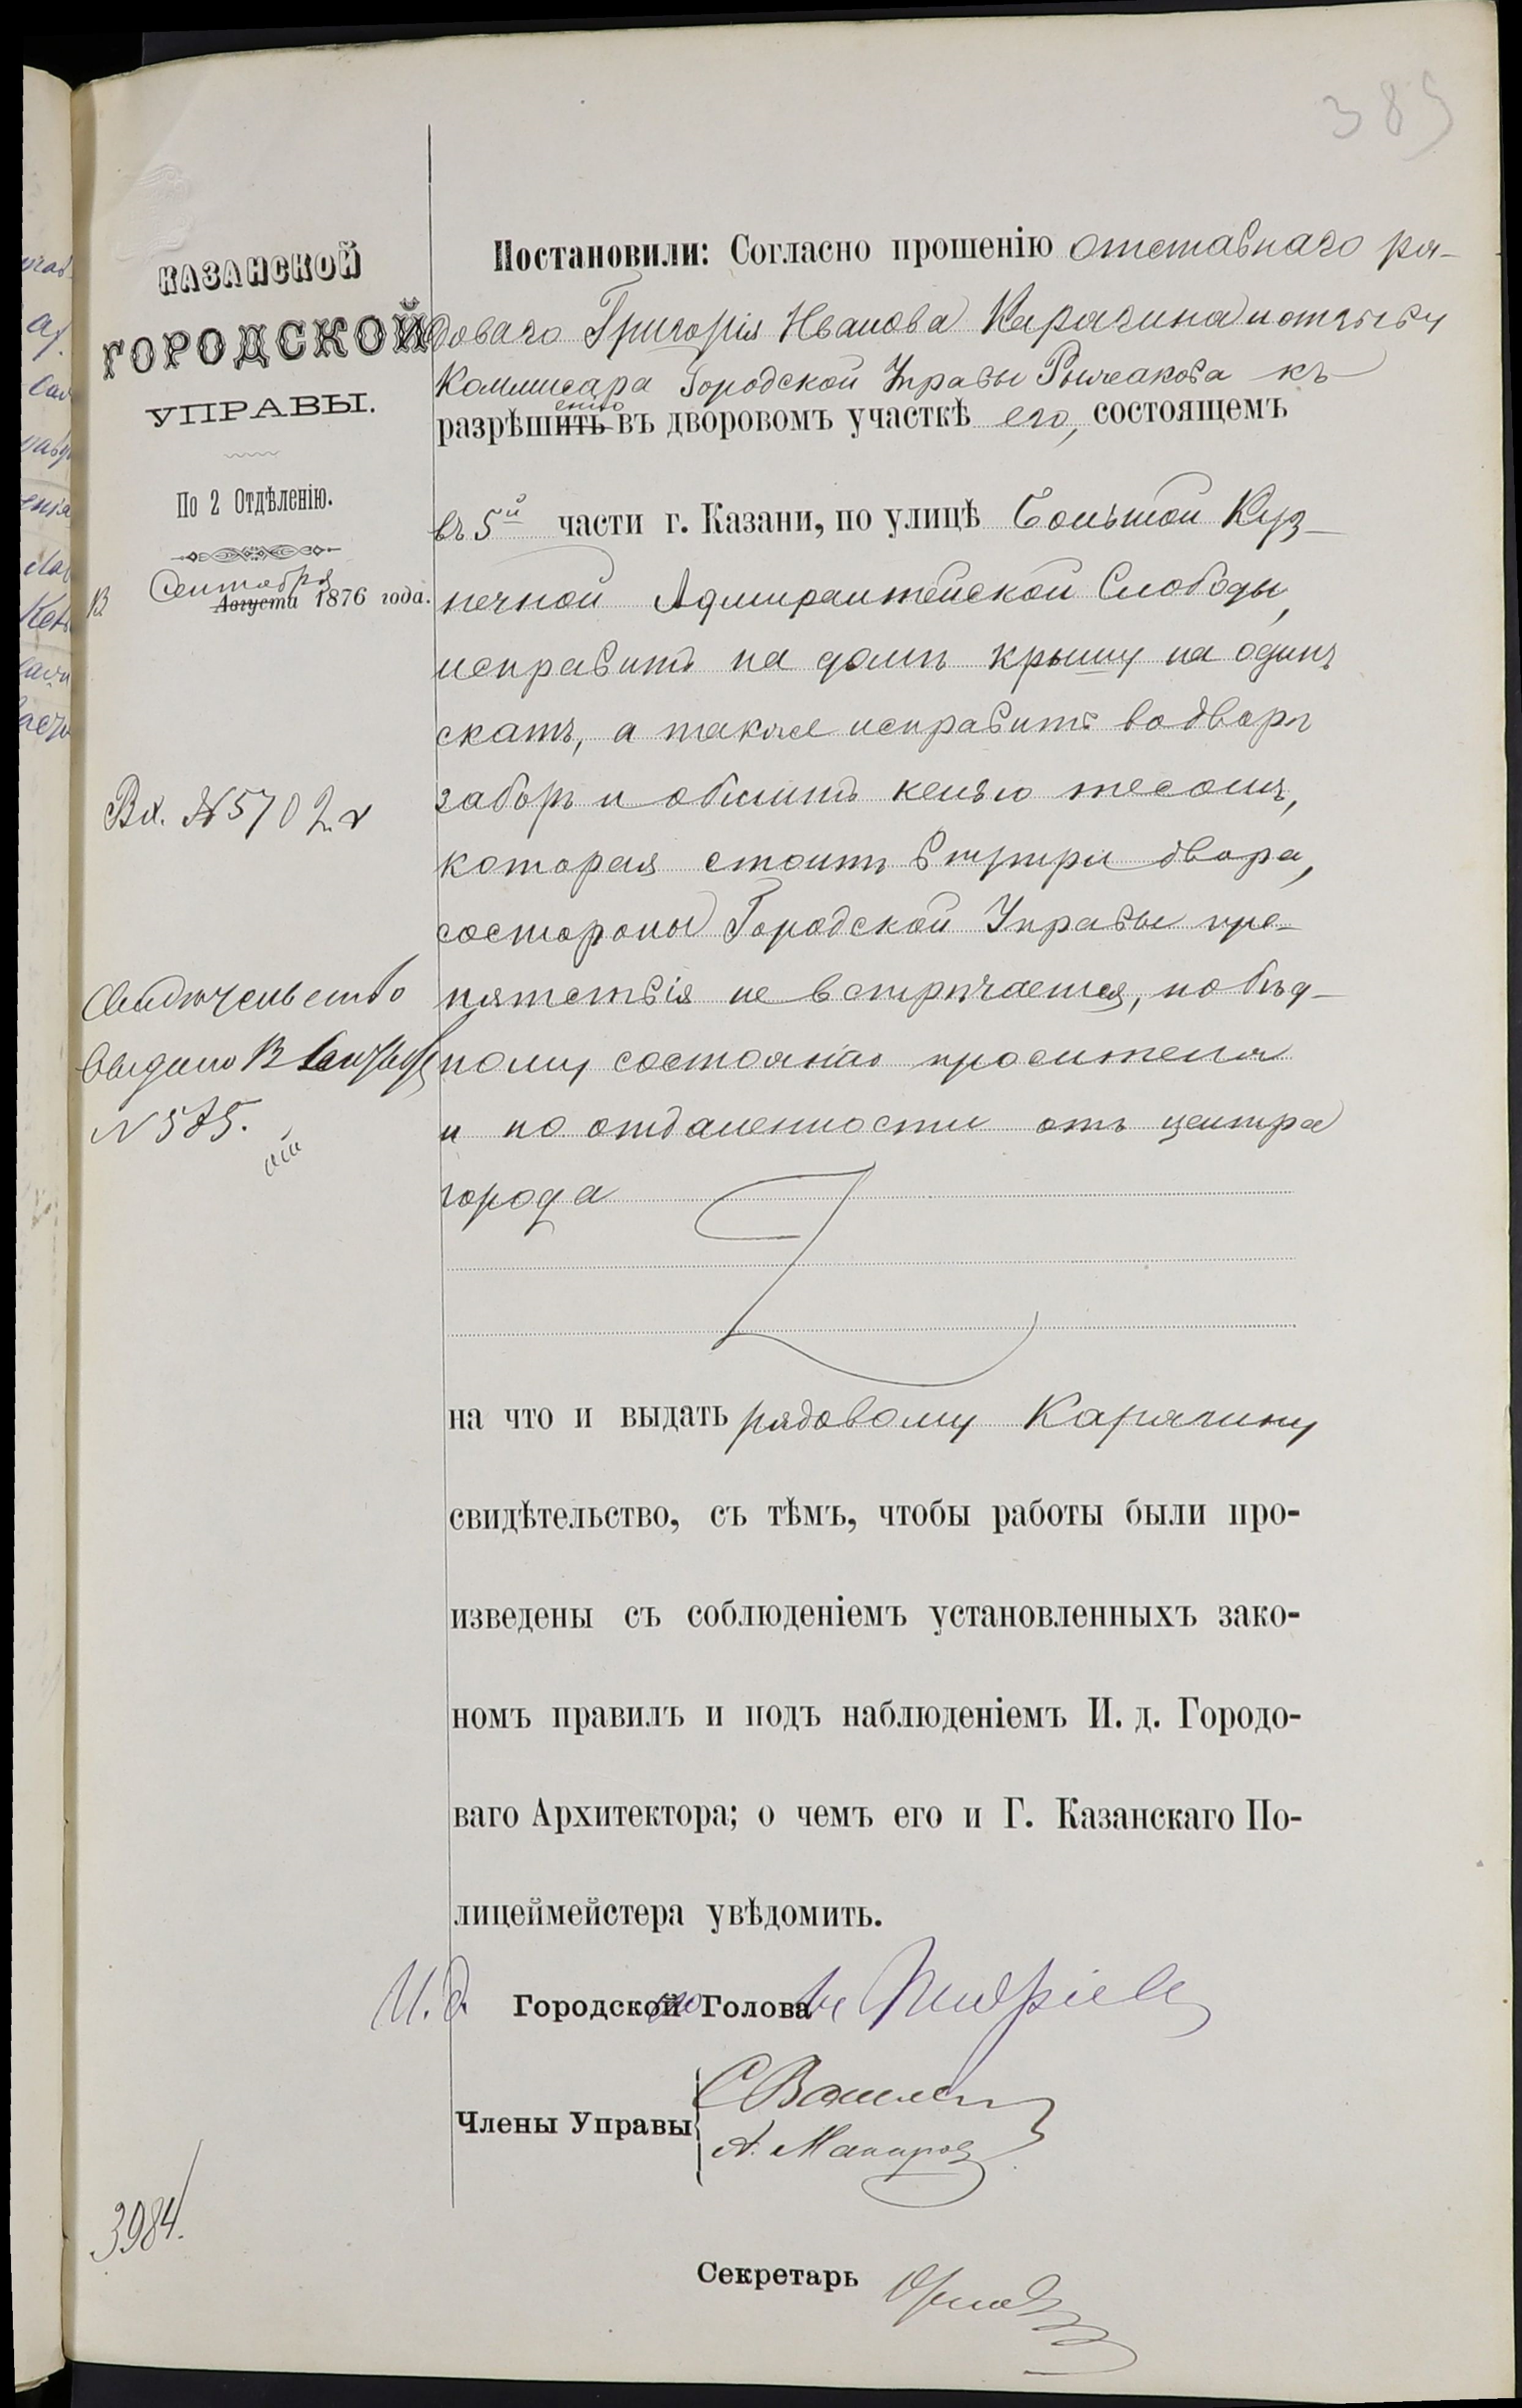 385
КАЗАНСКОЙ
ГОРОДСКОЙ
УПРАВЫ.
По 2 Отдѣленію.
13 Сентября
Августа 1876 года.
Вх. № 5702
Свидѣтельство
выдано 13 Сентября
№ 585.
3984.
Постановили: Согласно прошенію отставнаго ря-
доваго Григорія Иванова Карягина и отзыву
Коммисара Городской Управы Рыбакова къ
разрѣшенію въ дворовомъ участкѣ его, состоящемъ
въ 5й части г. Казани, по улицѣ Большой Куз-
нечной Адмиралтейской Слободы,
исправить на домѣ крышу на одинъ
скатъ, а также исправить во дворѣ
заборъ и обшить келью тесомъ,
которая стоитъ внутри двора,
со стороны Городской Управы пре-
пятствія не встрѣчается, по бѣд-
ному состоянію просителя
и по отдаленности отъ центра
города
на что и выдать рядовому Карягину
свидѣтельство, съ тѣмъ, чтобы работы были про-
изведены съ соблюденіемъ установленныхъ зако-
номъ правилъ и подъ наблюденіемъ И. д. Городо-
ваго Архитектора; о чемъ его и Г. Казанскаго По-
лицеймейстера увѣдомить.
И. д. Городской Голова
Члены Управы
А. Макаров
Секретарь